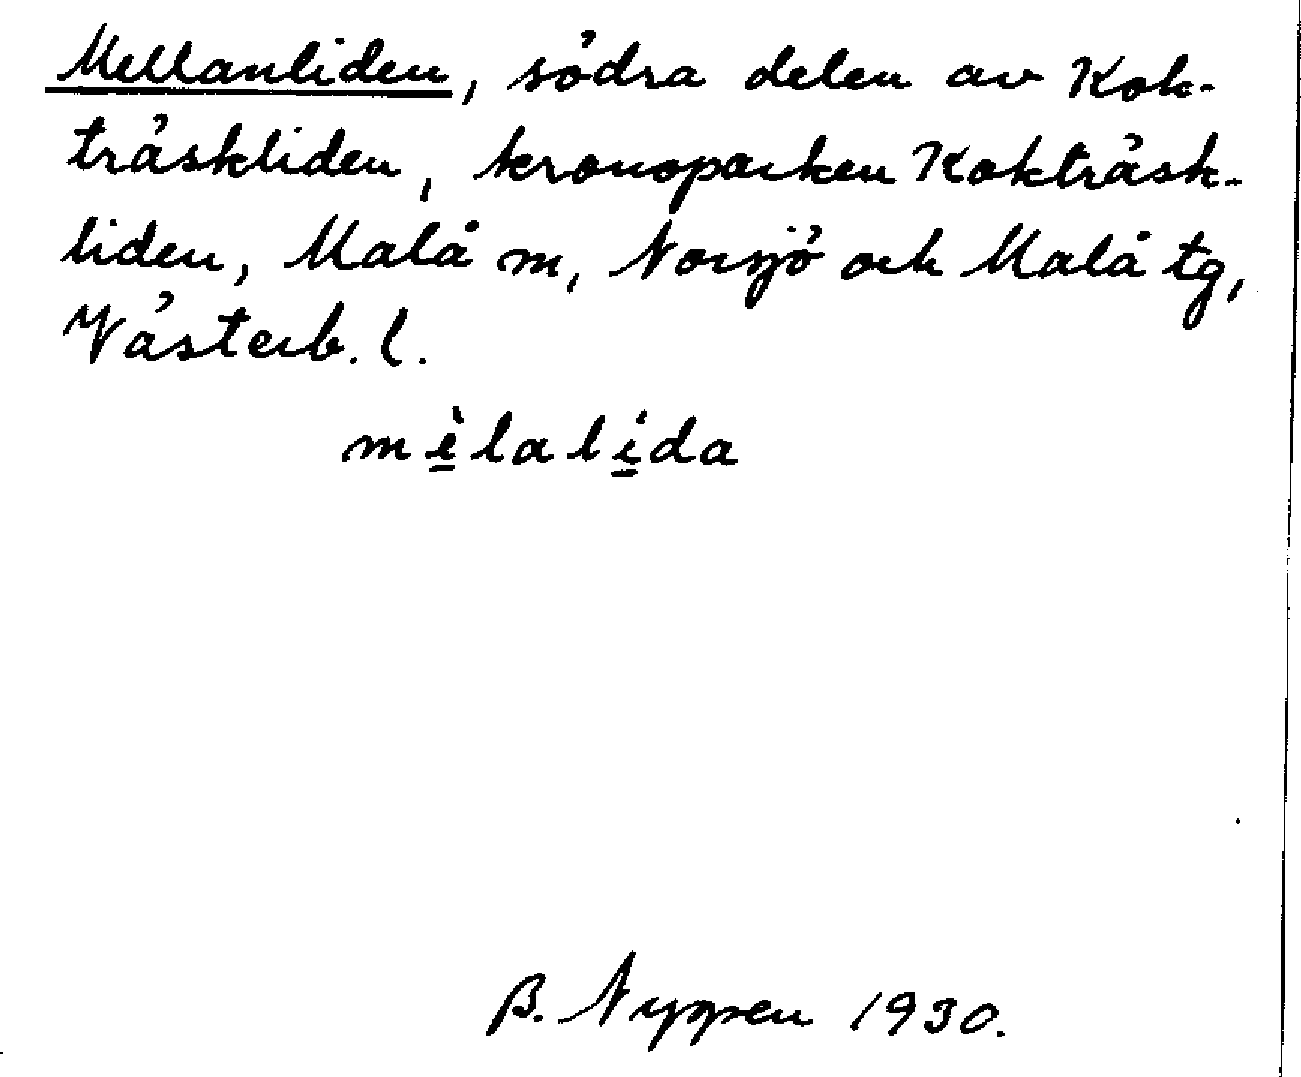 Mellanliden, södra delen av Kok-
träskliden, kronoparken Kokträsk-
liden, Malå m, Norsjö och Malå tg,
Västerb. l.
mèlalída
B. Nygren 1930.